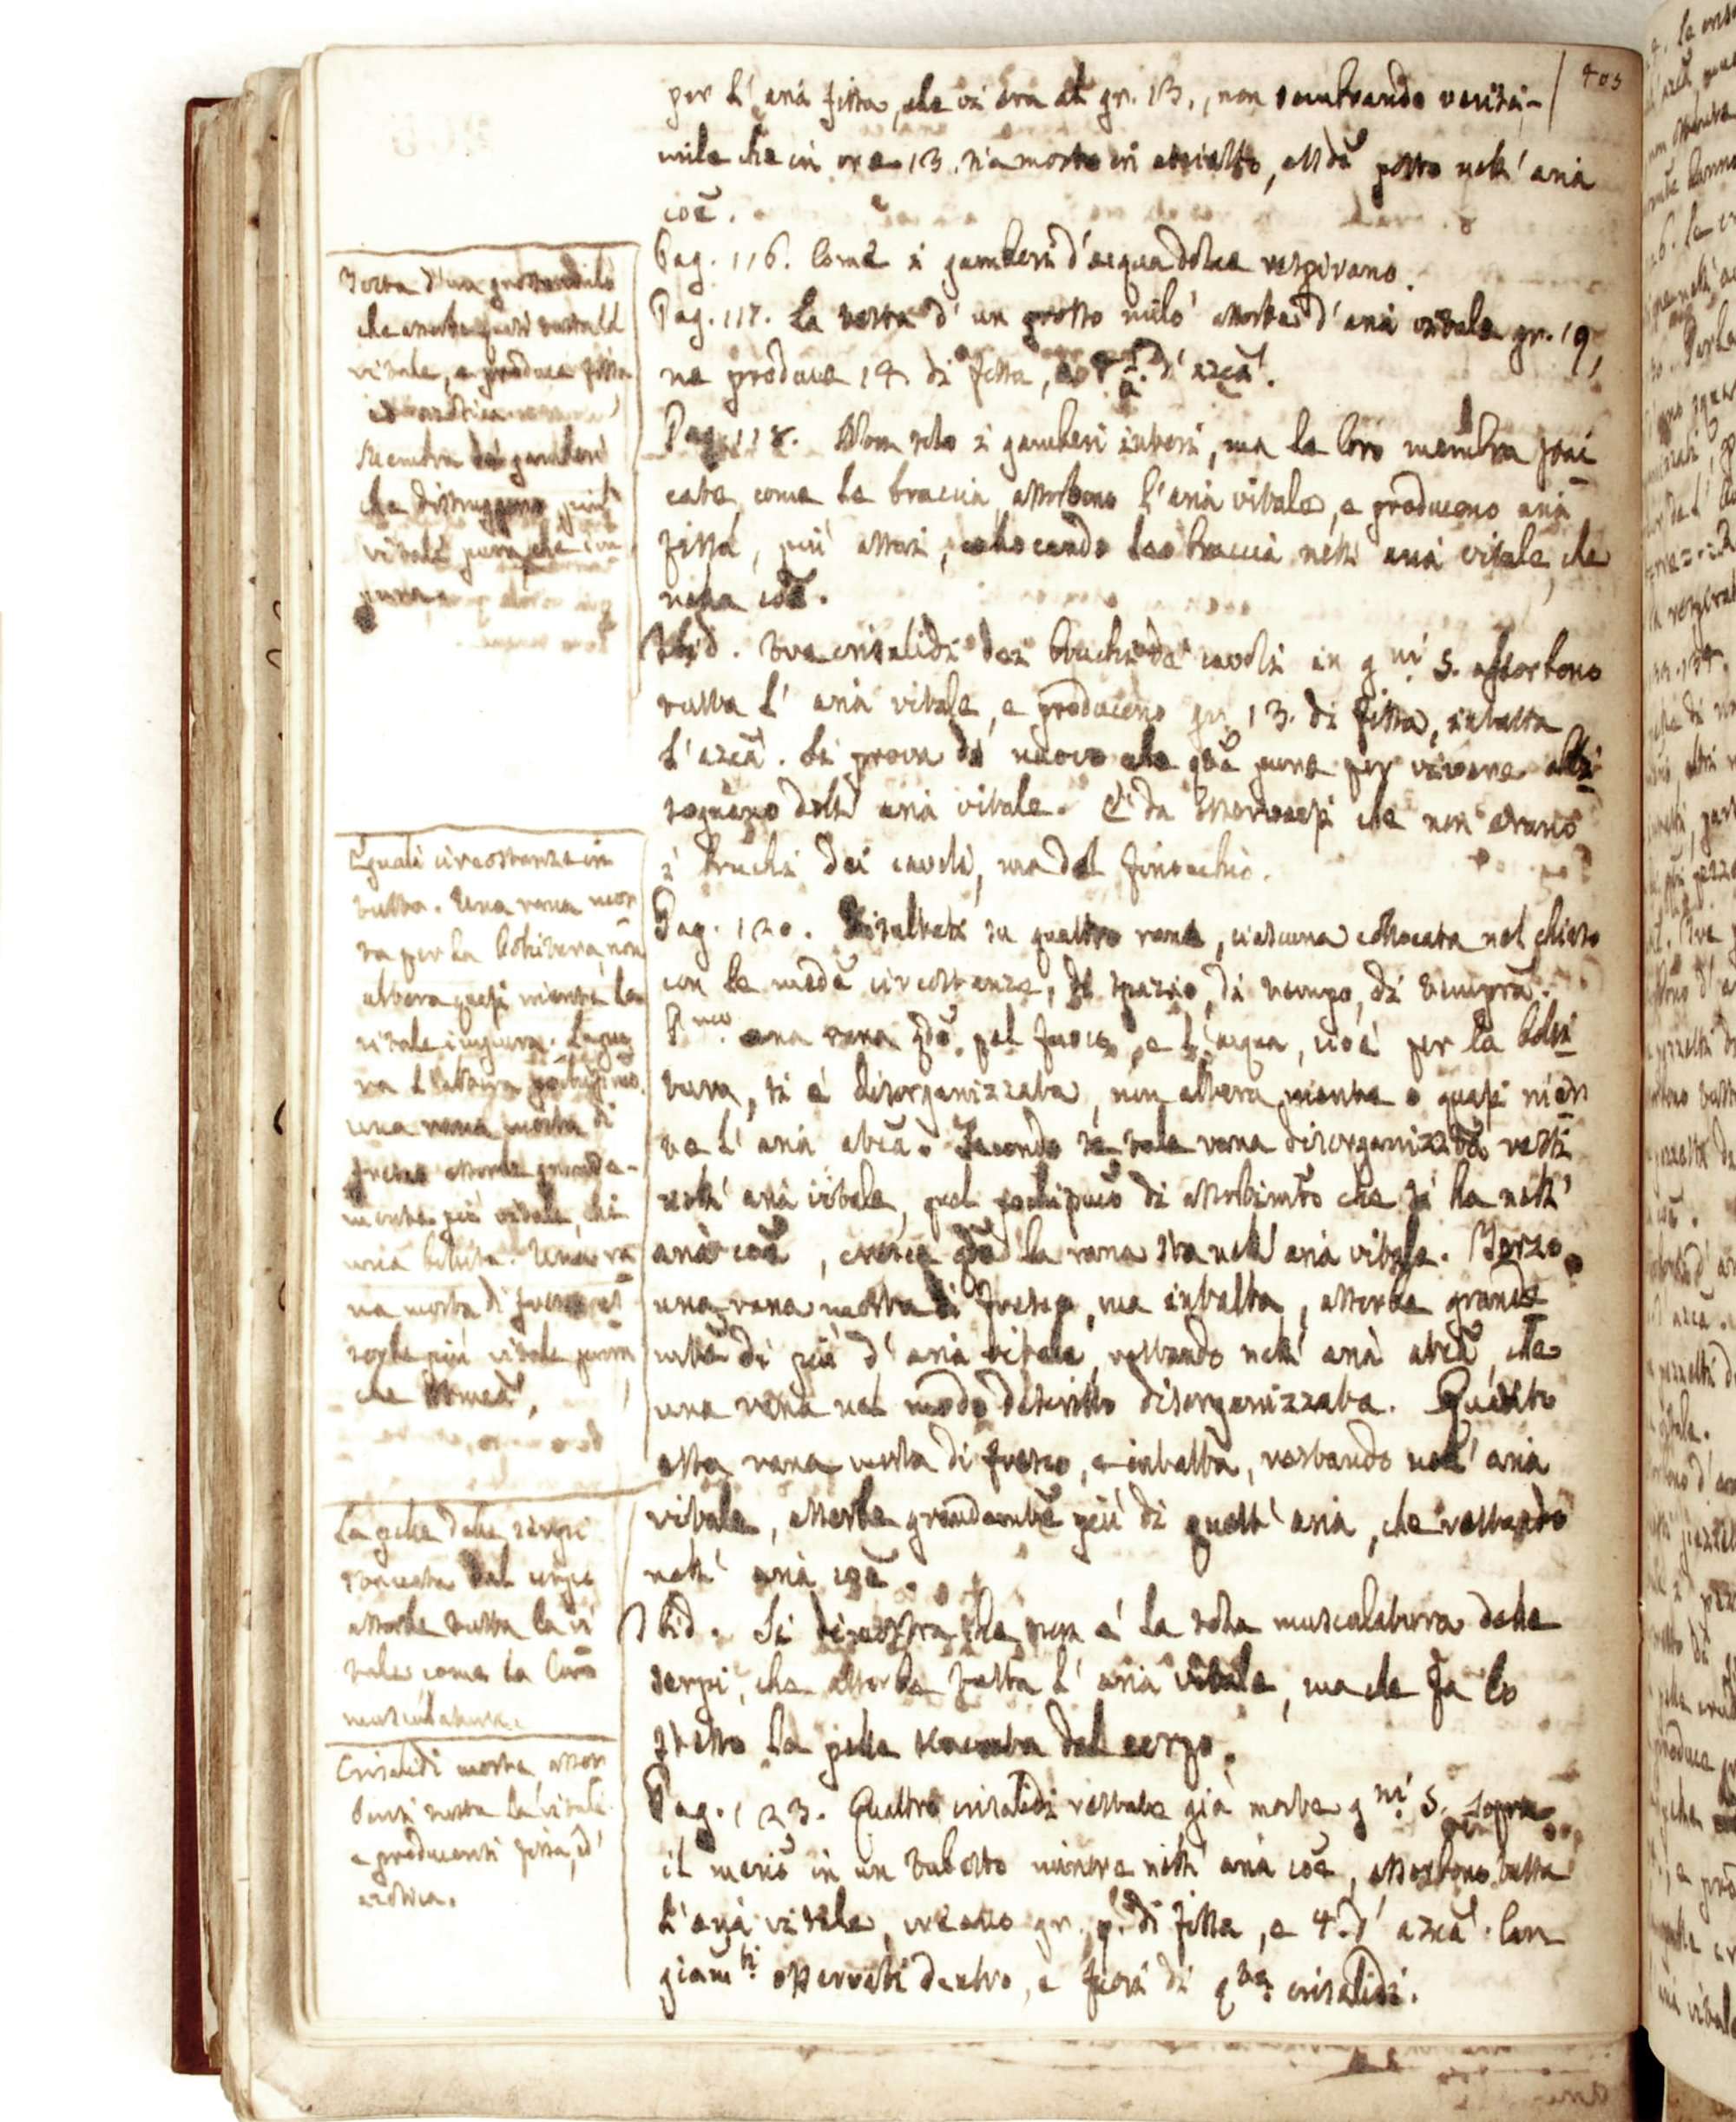 403
per l' aria fissa, che vi era al gr. 13., non sembrando verisi-
mile che in ore 13. sia morto in
nell' aria
coē.
Pag. 116. Come i gamberi d'acqua dolce respirano.
Pag. 117. La testa d' un grosso milò assorbe d' aria vitale gr. 19,
ne produce 14. di fissa, d' azcā.
Pag. 118. Non solo i gamberi interi, ma le loro membra
cate, come le braccia, assorbono l'aria vitale, e producono aria
fissa, più assai, collocando le braccia nell' aria vitale, che
nella coē.
Ibid. Due crisalidi dei bruchi de' cavoli in gni. 5. assorbono
tutta l' aria vitale, e producono gr. 13. di fissa, intatta
l' azcā. Si prova di nuovo che qte pure per vivere abbi
sognano dell' aria vitale. E' da osservarsi che non erano
i bruchi dei cavoli, ma del finocchio.
Pag. 120. Risultati su quattro rane, ciascuna collocata nel chiuso
con le medē circostanze, di spazio, di tempo, di tempra.
una rana pel fuoco, e l' acqua, cioè per la bolli
tura, si è disorganizzata, non altera niente o quasi nien
te l' aria Secondo se tale rana disorganizzata resti
nell' aria vitale, quel pochissimo di assorbimto che si ha nell'
aria coē, cresce qdo la rana sta nell' aria vitale. Terzo
una rana morta di fresco, ma intatta, assorbe grande
mtē di più d' aria vitale, restando nell' aria che
una rana nel modo descritto disorganizzata. Quarto
essa rana morta di fresco, e intatta, restando nell' aria
vitale, assorbe grandemtē più di quell' aria, che restando
nell' aria coē.
Ibid. Si dimostra che non è la sola muscolatura delle
serpi, che assorbe tutta l' aria vitale, ma che fa lo
stesso la pelle staccata dal corpo.
Pag. 123. Quattro crisalidi restate già morte gni. 5. sopra
il mercō in un tubetto mentre nell' aria coē, assorbono tutta
l'aria vitale, creano gr. 9. di fissa, e 4. d' azcā. Can
giamti. osservati dentro, e fuori di qte. crisalidi.
Testa d'un grosso milò
che assorbe quasi tutta la
vitale, e produce fissa
ed azotica
Membra dei gamberi
che distruggono più
vitale pura che im
pura.
Eguali circostanze in
tutto. Una rana mor
ta per la bollitura, non
altera quasi niente la
vitale impura. La pu
ra l' altera pochissimo.
Una rana morta di
fresco assorbe grande-
mente più vitale, che
una bollita. Una ra
na morta di fresco as
sorbe più vitale pura
che
La pelle delle serpi
staccata dal corpo
assorbe tutta la vi
tale come la loro
muscolatura.
Crisalidi morte, assor
benti tutta la vitale
e producenti fissa, ed
azotica.